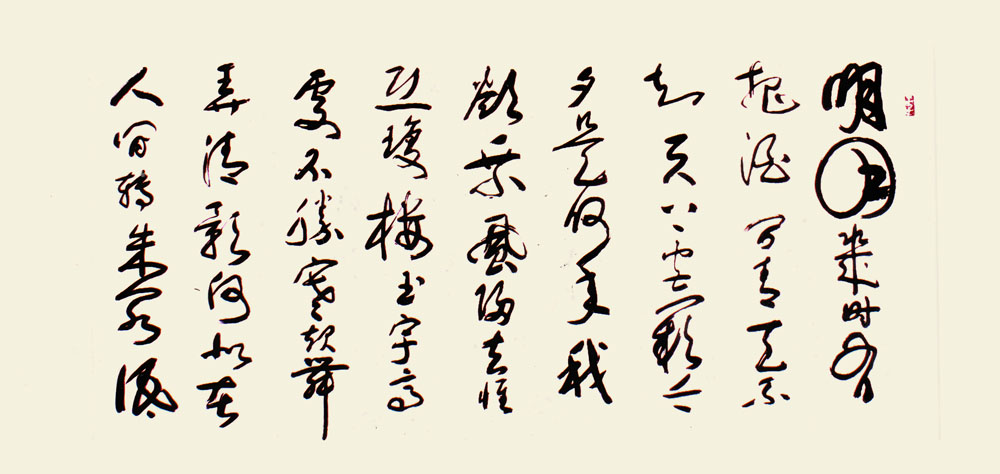 明月幾时有
把酒问青天不
知天上宫阙今
夕是何年我
欲乘風歸去惟
恐瓊樓玉宇高
處不勝寒起舞
弄清影何似在
人间轉朱阁低